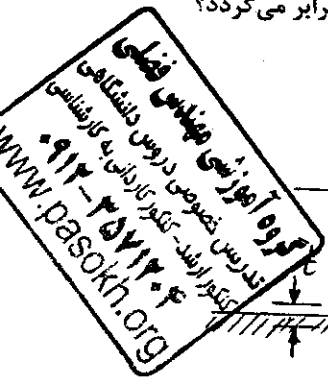 برابر می‌گردد؟
گروه آموزشی مهندس فضلی
تدریس خصوصی دروس دانشگاهی
کنکور ارشد - کنکور کاردانی به کارشناسی
۰۹۱۲-۳۵۷۱۲۰۴
www.pasokh.org